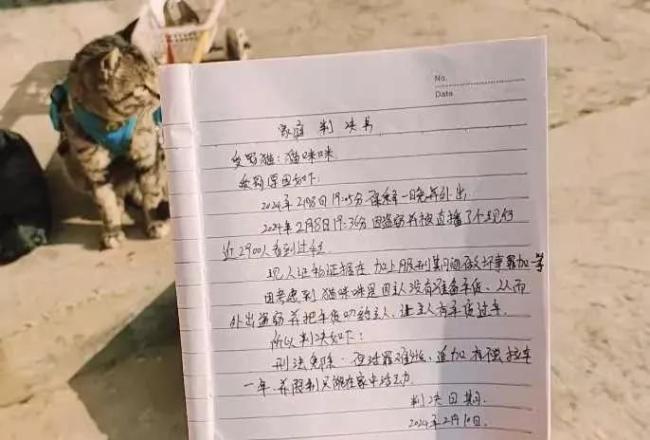 No.
Date
家庭判决书
受罚猫:猫咪咪
受罚原因如下:
2024年2月8日19:05分 保释一日晚再外出
2024年2月8日19:36分 因盗窃并被直播了个现行
近2900人看到过程
现人证物证据在 加上服刑期间
因考虑到猫咪咪是因主人没有准备年货、从而
外出盗窃并把年货叼给主人、让主人有年货过年.
所以判决如下:
刑法免除·但活罪难逃、追加 拉车
一年.并限制只能在家中活动
判决日期:
2024年2月10日.